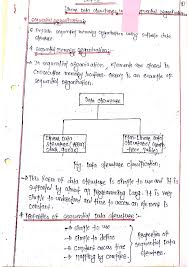 Linear Data structure sequential organization
* Sequential organization
* Provide sequential memory organization using suitable data structure.
* Sequential Memory organization:
* In sequential organization, elements are stored in consecutive memory location. Array is an example of sequential organization.
Data structure
Linear Data structure
Non-linear Data structure
Fig. Data structure classification.
→ This form of data structure is simple to use and it is supported by almost all programming lang. It is very simple to understand and time to access an element is constant.
* Properties of sequential Data structure:
→ simple to use
→ simple to define
→ constant access time
→ mapping by compiler
Properties of sequential Data structure